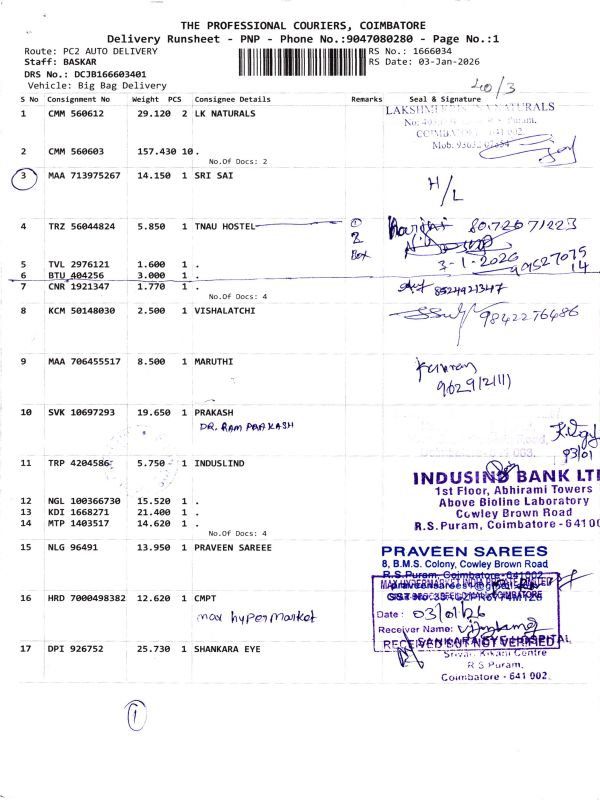 THE PROFESSIONAL COURIERS, COIMBATORE
Delivery Runsheet - PNP - Phone No.:9047080280 - Page No.:1
Route: PC2 AUTO DELIVERY
RS No.: 1666034
Staff: BASKAR
RS Date: 03-Jan-2026
DRS No.: DCJB166603401
Vehicle: Big Bag Delivery
40/3
S No Consignment No Weight PCS Consignee Details Remarks Seal & Signature
1 CMM 560612 29.120 2 LK NATURALS
COIMBATORE - 641 002
2 CMM 560603 157.430 10 .
No.Of Docs: 2
3 MAA 713975267 14.150 1 SRI SAI
H/L
4 TRZ 56044824 5.850 1 TNAU HOSTEL
2
Box
3-1-2026
5 TVL 2976121 1.600 1 .
6 BTU 404256 3.000 1 .
14
7 CNR 1921347 1.770 1 .
8524921347
No.Of Docs: 4
8 KCM 50148030 2.500 1 VISHALATCHI
9842276486
9 MAA 706455517 8.500 1 MARUTHI
10 SVK 10697293 19.650 1 PRAKASH
DR. RAM PRAKASH
11 TRP 4204586 5.750 1 INDUSLIND
INDUSIND BANK LT
1st Floor, Abhirami Towers
Above Bioline Laboratory
Cowley Brown Road
R.S.Puram, Coimbatore - 6410
12 NGL 100366730 15.520 1 .
13 KDI 1668271 21.400 1 .
14 MTP 1403517 14.620 1 .
No.Of Docs: 4
15 NLG 96491 13.950 1 PRAVEEN SAREEE
PRAVEEN SAREES
8, B.M.S. Colony, Cowley Brown Road
R.S.Puram, Coimbatore - 641 002
16 HRD 7000498382 12.620 1 CMPT
max hypermarket
Date : 03/01/26
Receiver Name:
RECEIVED BUT NOT VERIFIED
17 DPI 926752 25.730 1 SHANKARA EYE
SANKARA EYE HOSPITAL
R.S.Puram,
Coimbatore - 641 002.
1